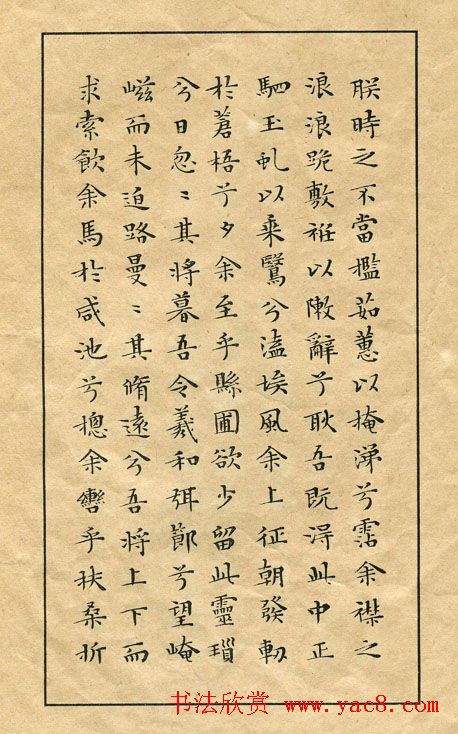 朕時之不當檻茹蕙以掩涕兮霑余襟之
浪浪跪敷袵以敶辭兮耿吾既得此中正
駟玉虬以乘鷖兮溘埃風余上征朝發軔
於蒼梧兮夕余至乎縣圃欲少留此靈瑣
兮日忽〻其將暮吾令羲和弭節兮望崦
嵫而未迫路曼〻其脩遠兮吾將上下而
求索飲余馬於咸池兮摠余轡乎扶桑折
书法欣赏 www.yac8.com